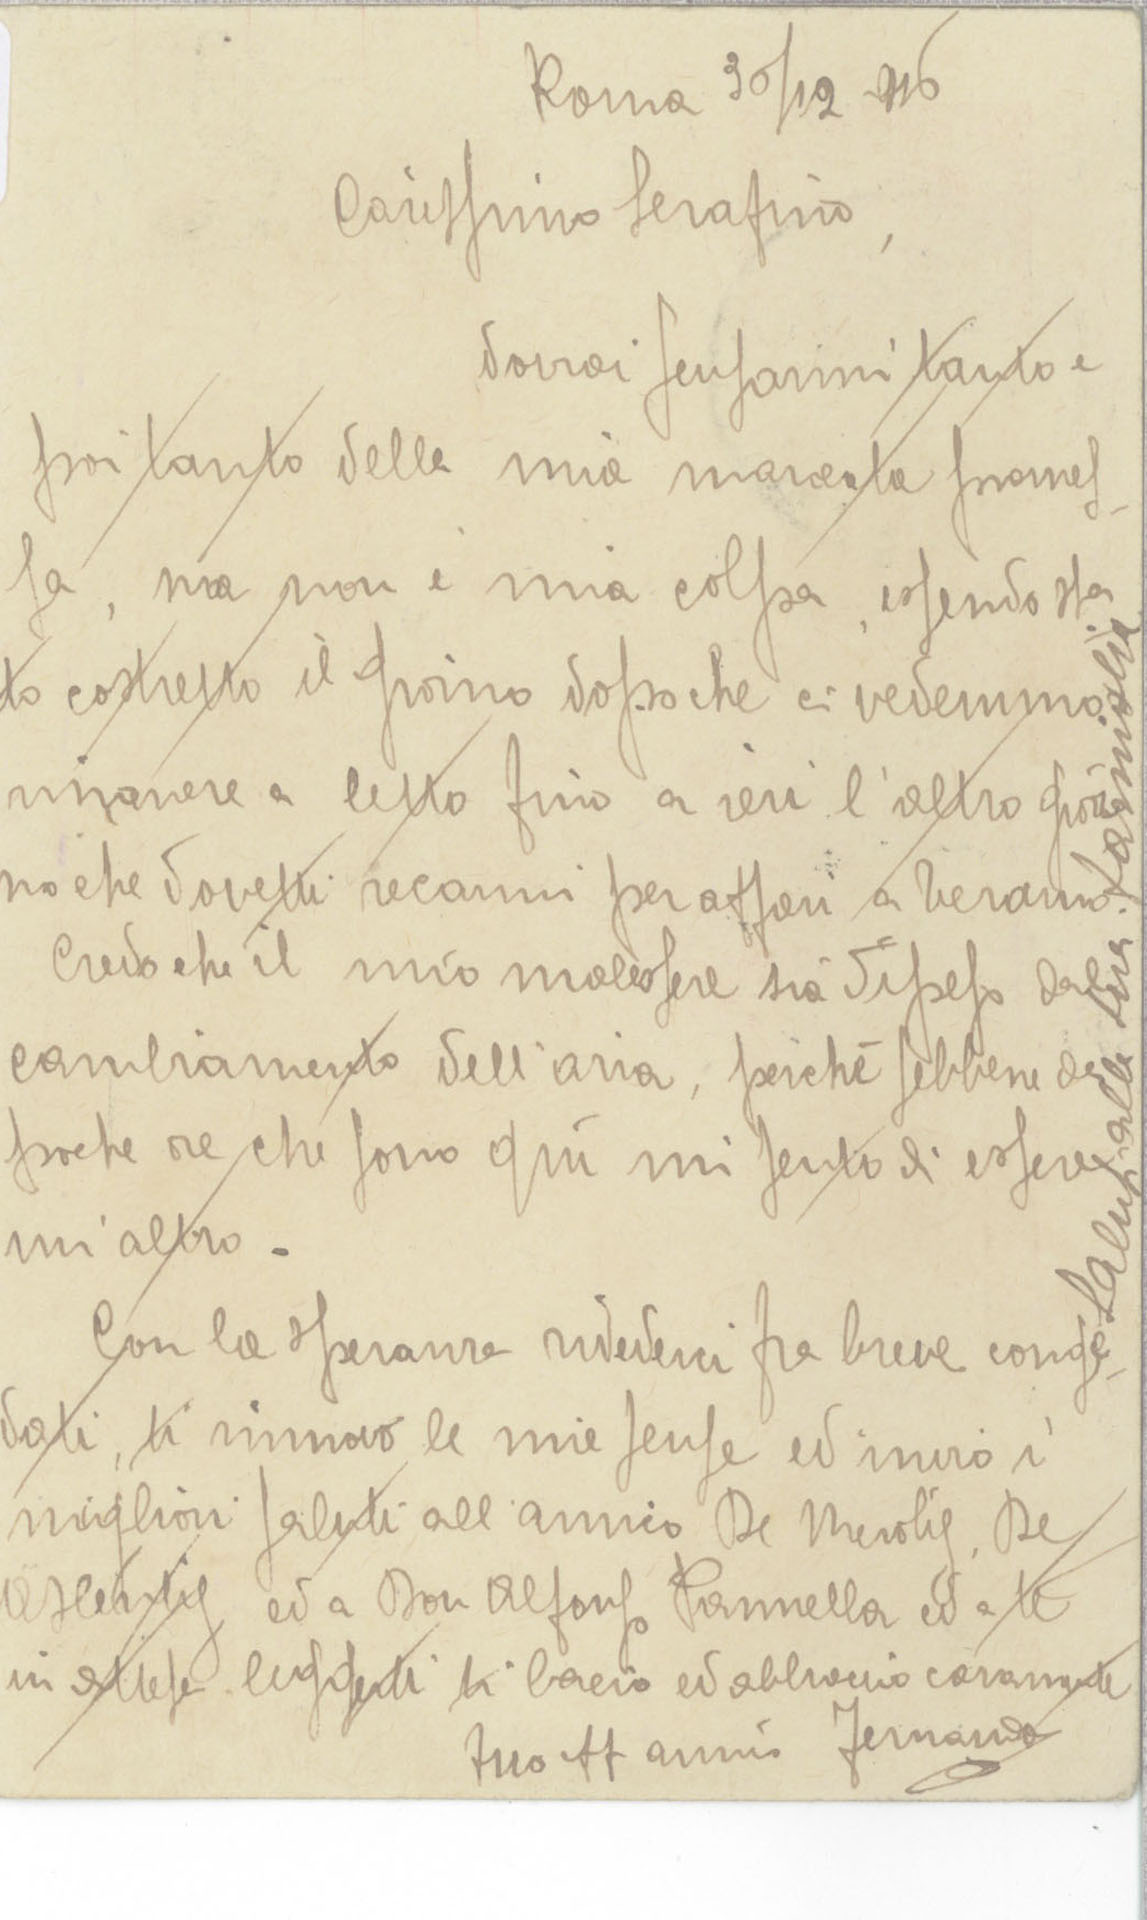 Roma 30/12 916
Carissimo Serafino,
Dovrai scusarmi tanto e
poi tanto della mia mancata promes-
sa, ma non è mia colpa, essendo sta
to costretto il giorno dopo che ci vedemmo
rimanere a letto fino a ieri l'altro gior
no che dovetti recarmi per affari a Teramo.
Credo che il mio malessere sia dipeso dal
cambiamento dell'aria, perché sebbene da
poche ore che sono quì mi sento di essere
un'altro -
Con la speranza rivederci fra breve conge-
dati, ti rinnovo le mie scuse ed invio i
migliori saluti all'amico De Merolis, De
Ascentiis ed a Don Alfonso Pannella ed a te
in attesa leggerti ti bacio ed abbraccio caramente
tuo aff amico Fernando
Saluti alla tua famiglia